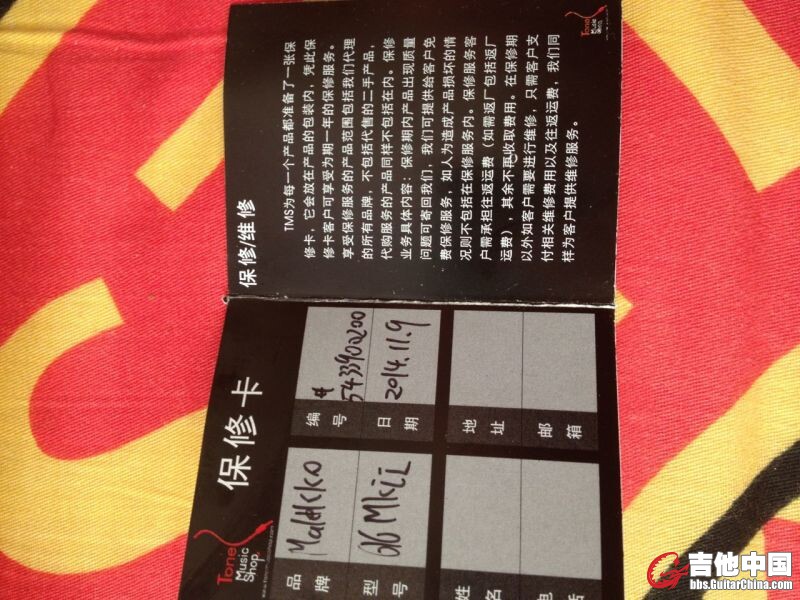 Tone
Music
Shop
保修卡
品牌 Malekko 编号 #
5433900200
型号 616 MkII 日期 2014.11.9
姓名 地址
电 邮箱
Tone
Music
Shop
保修/维修
TMS为每一个产品都准备了一张保
修卡，它会放在产品的包装内，凭此保
修卡客户可享受为期一年的保修服务。
享受保修服务的产品范围包括我们代理
的所有品牌，不包括代售的二手产品，
代购服务的产品同样不包括在内。保修
业务具体内容：保修期内产品出现质量
问题可寄回我们，我们可提供给客户免
费保修服务，如人为造成产品损坏的情
况则不包括在保修服务内。保修服务客
户需承担往返运费（如需返厂包括返厂
运费），其余不再收取费用。在保修期
以外如客户需要进行维修，只需客户支
付相关维修费用以及往返运费，我们同
样为客户提供维修服务。
吉他中国
bbs.GuitarChina.com